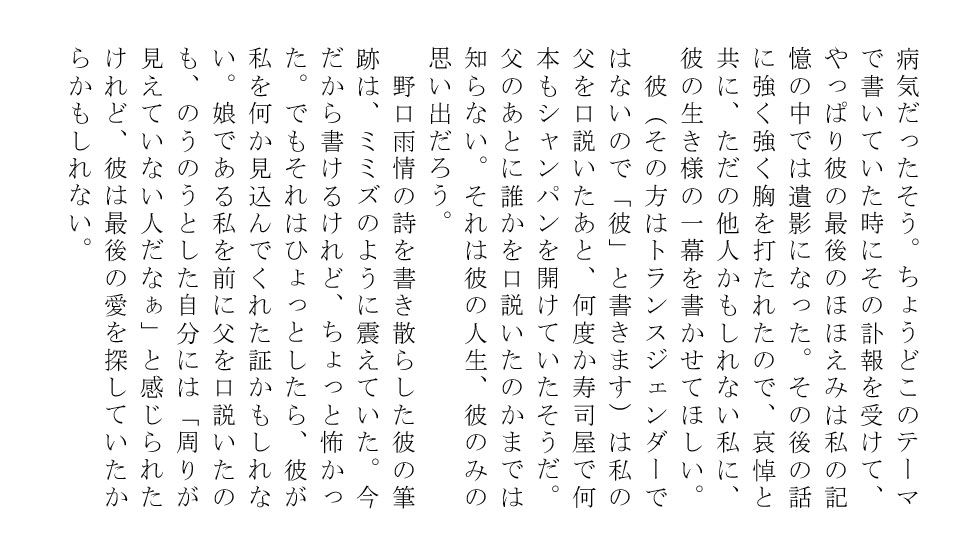 病気だったそう。ちょうどこのテーマ
で書いていた時にその訃報を受けて、
やっぱり彼の最後のほほえみは私の記
憶の中では遺影になった。その後の話
に強く強く胸を打たれたので、哀悼と
共に、ただの他人かもしれない私に、
彼の生き様の一幕を書かせてほしい。
　彼（その方はトランスジェンダーで
はないので「彼」と書きます）は私の
父を口説いたあと、何度か寿司屋で何
本もシャンパンを開けていたそうだ。
父のあとに誰かを口説いたのかまでは
知らない。それは彼の人生、彼のみの
思い出だろう。
　野口雨情の詩を書き散らした彼の筆
跡は、ミミズのように震えていた。今
だから書けるけれど、ちょっと怖かっ
た。でもそれはひょっとしたら、彼が
私を何か見込んでくれた証かもしれな
い。娘である私を前に父を口説いたの
も、のうのうとした自分には「周りが
見えていない人だなぁ」と感じられた
けれど、彼は最後の愛を探していたか
らかもしれない。